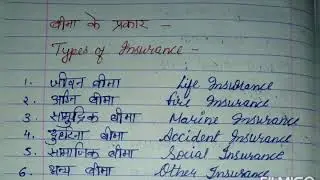 बीमा के प्रकार -
Types of Insurance -
1. जीवन बीमा Life Insurance
2. अग्नि बीमा Fire Insurance
3. सामुद्रिक बीमा Marine Insurance
4. दुर्घटना बीमा Accident Insurance
5. सामाजिक बीमा Social Insurance
6. अन्य बीमा Other Insurance